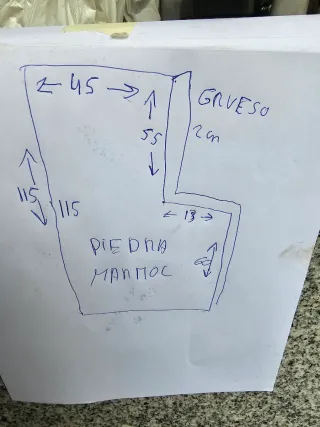 45
GRUESO
2cm
55
115
115
13
60
PIEDRA
MARMOL